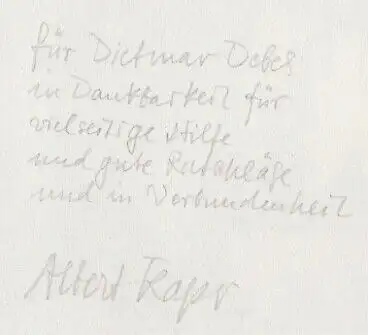 für Dietmar Debes
in Dankbarkeit für
vielseitige Hilfe
und gute Ratschläge
und in Verbundenheit
Albert Kapr